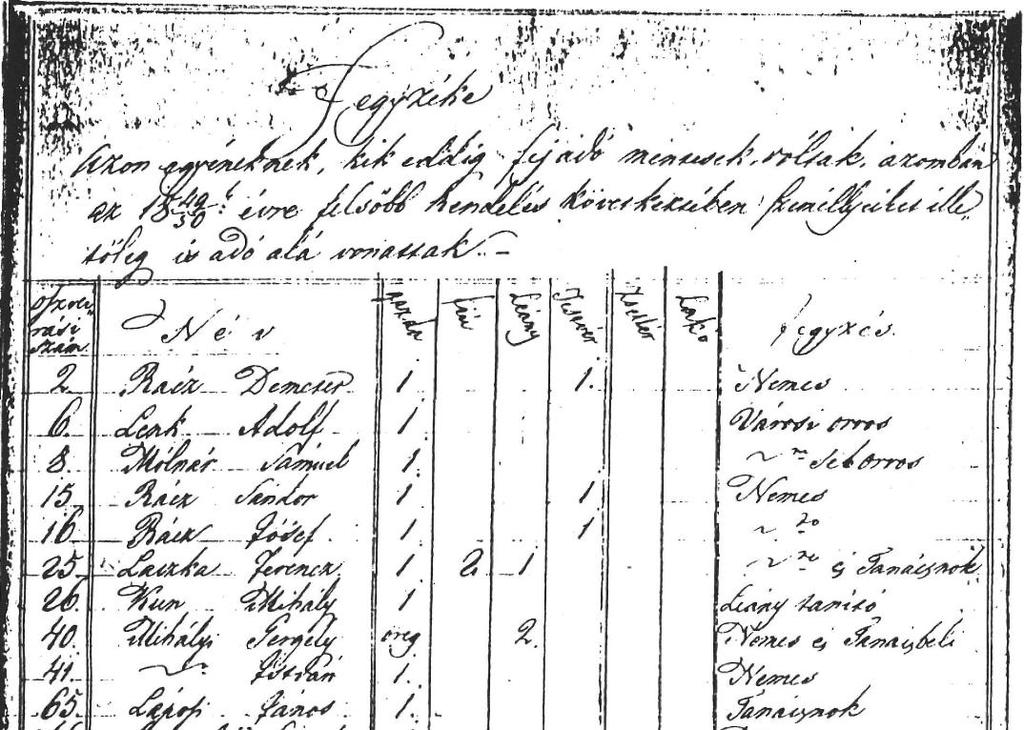 Jegyzéke
Azon egyéneknek, kik eddig fejadó mentesek voltak, azomban
az 18 49/50 évre felsőbb rendelés következtében személlyeiket ille
tőleg is adó alá vonattak. –
Öszveirási szám Név gazda fiú Leány Testvér Zsellér Lakó Jegyzés.
2. Rácz Demeter 1. 1. Nemes
6. Leak Adolf 1. Városi orvos
8. Mólnár Sámuel 1. ~ Seb Orvos
15. Rácz Sándor 1 1 Nemes
16. Rácz Jósef 1 1 ~
25. Laczka Ferencz 1 2. 1 ~ és Tanácsnok
26. Kun Mihály 1 Leány tanító
40. Mihályi Gergely öreg 2. Nemes és Tanácsbeli
41. ~ István 1. Nemes
65. János 1. Tanácsnok